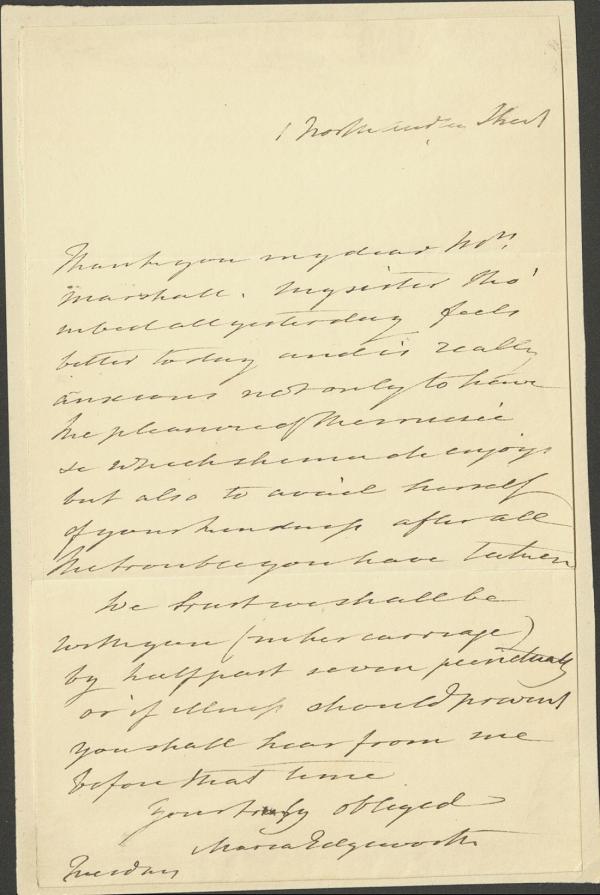 1 North Audley Street
Thank you my dear Mrs.
Marshall. My sister tho'
in bed all yesterday feels
better today and is really
anxious not only to have
the pleasure of the music
which she much enjoys
but also to avail herself
of your kindness after all
the trouble you have taken
We trust we shall be
with you (in her carriage)
by half past seven punctually
or if illness should prevent
you shall hear from me
before that time
Yours truly obliged
Maria Edgeworth
Tuesday